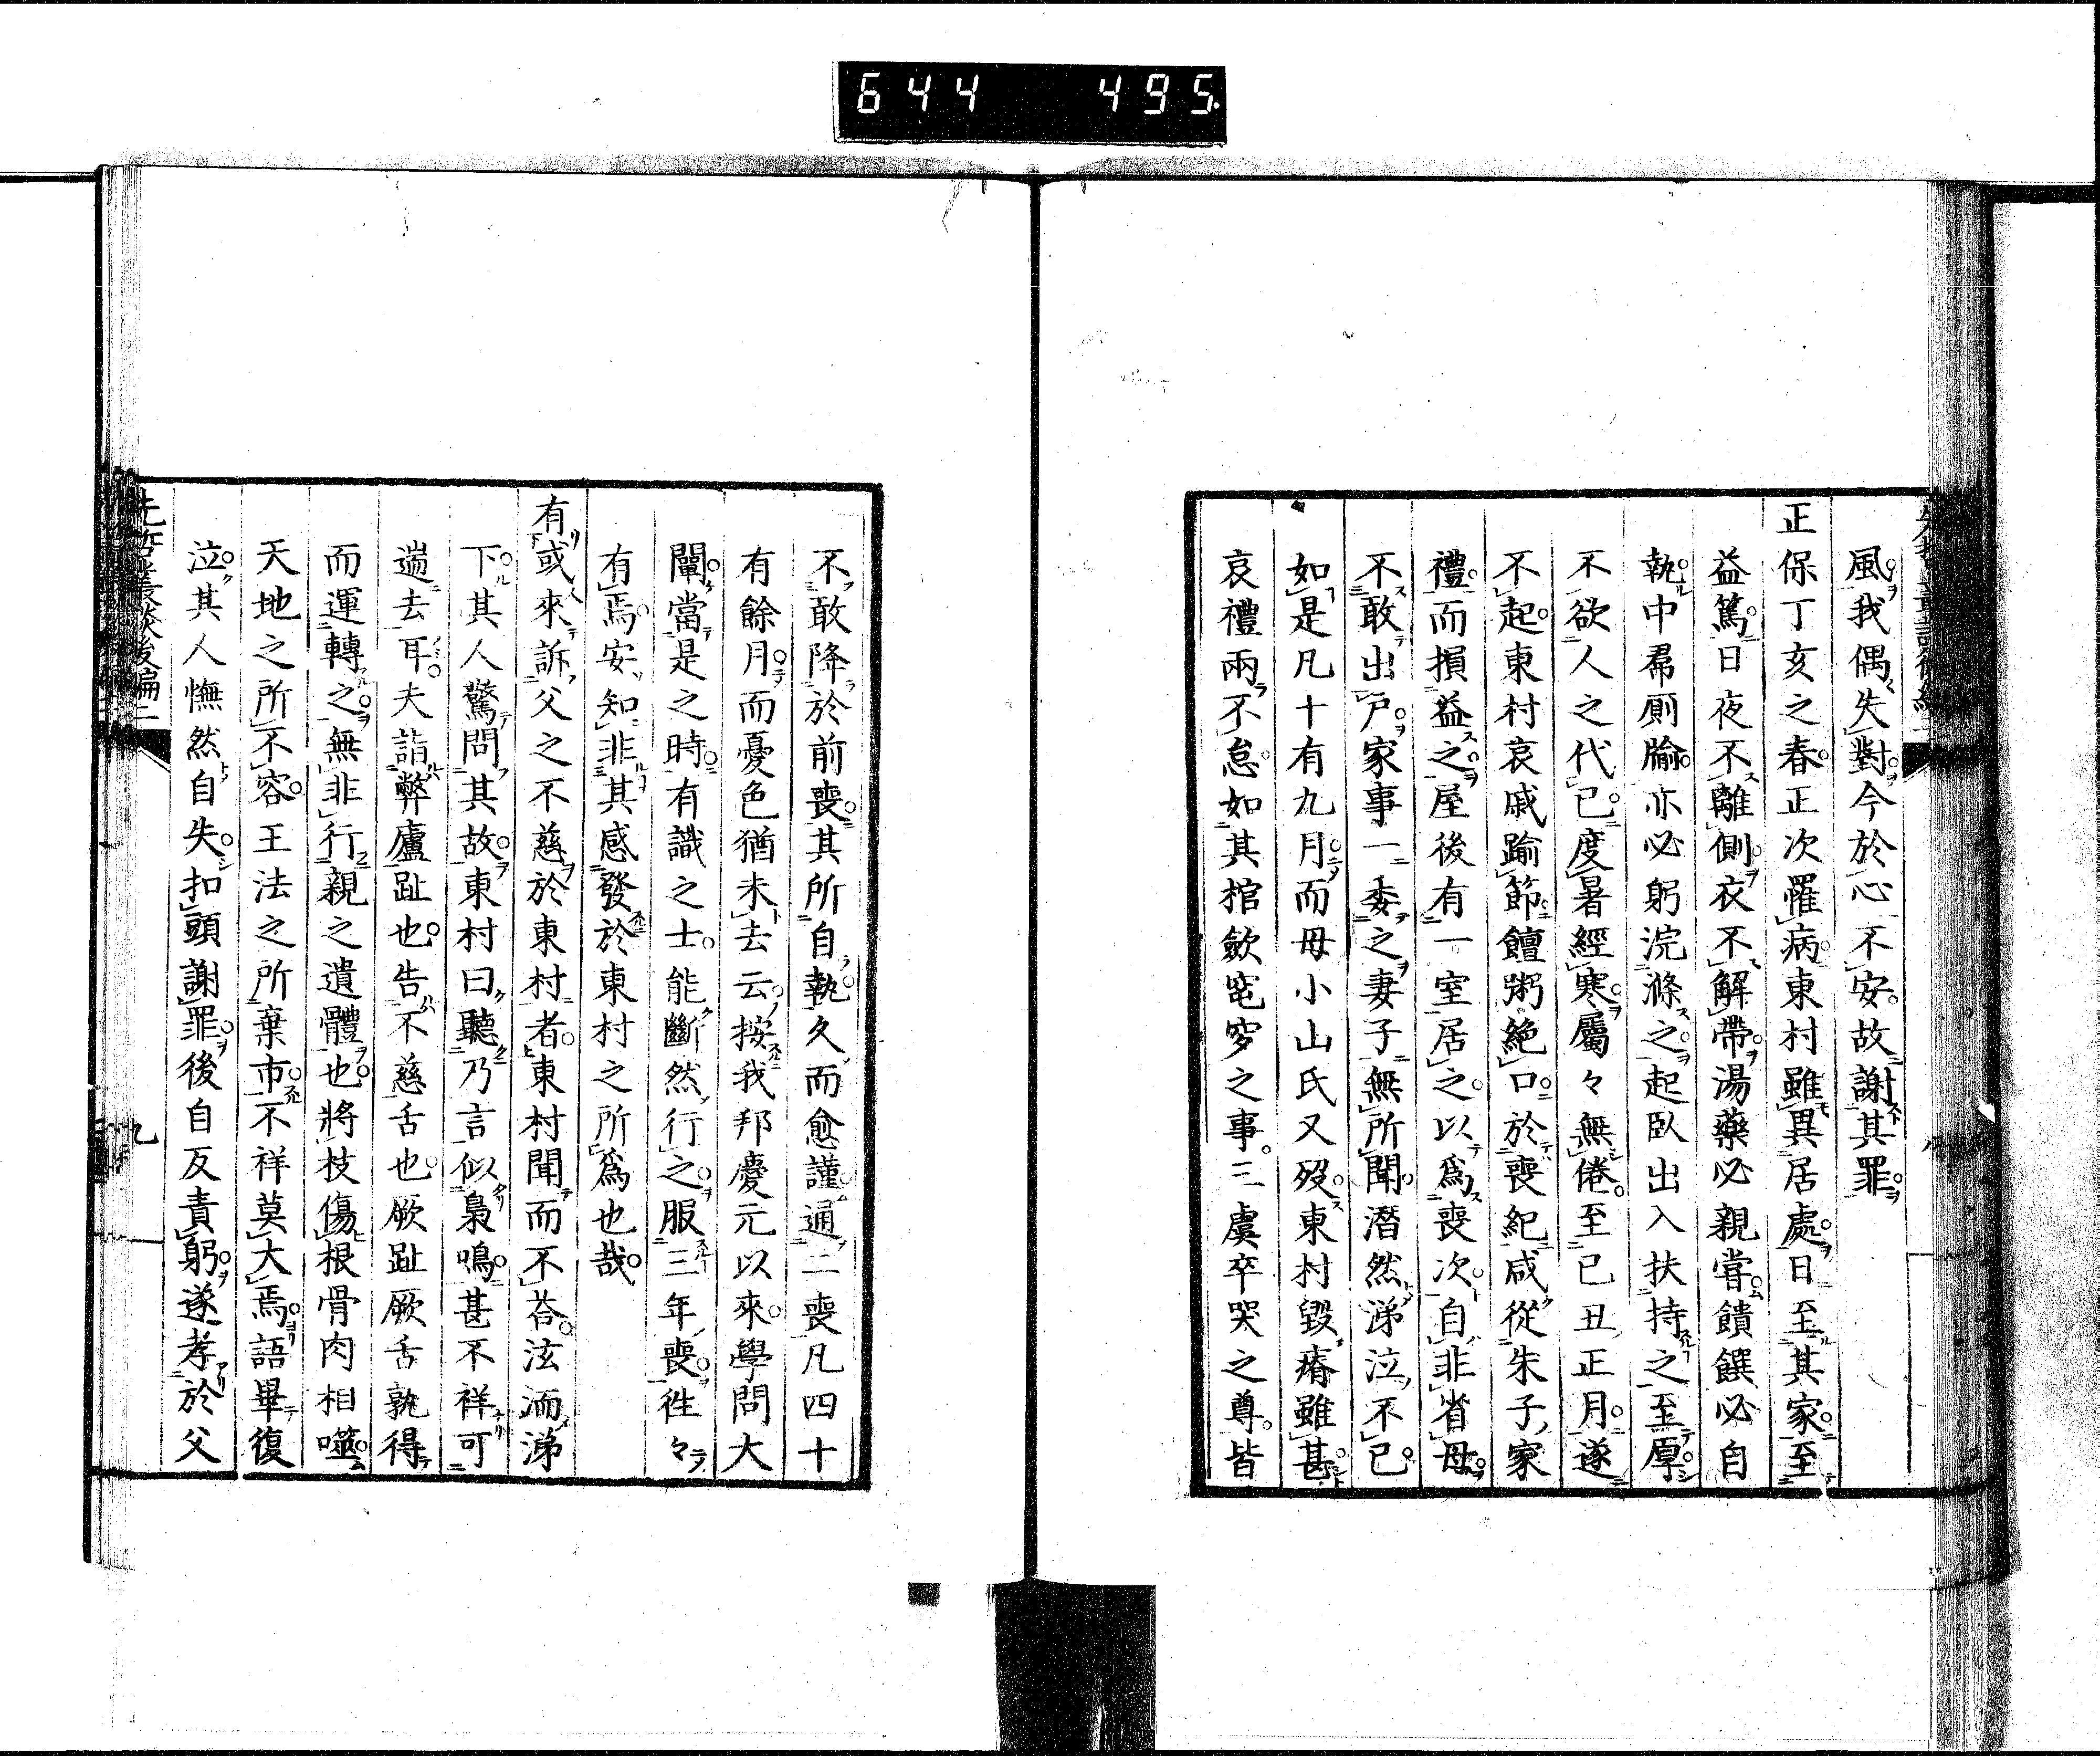 644 495
風我偶失對今於心不安故謝其罪
正保丁亥之春正次罹病東村雖異居處日至其家至
益篤日夜不離側衣不解帶湯藥必親嘗饋饌必自
執中帬厠牏亦必躬浣滌之起臥出入扶持之至厚
不欲人之代已度暑經寒屬々無倦至己丑正月遂
不起東村哀戚踰節饘粥絶口於喪紀咸從朱子家
禮而損益之屋後有一室居之以爲喪次自非省母
不敢出戸家事一委之妻子無所聞潛然涕泣不已
如是凡十有九月而母小山氏又歿東村毀瘠雖甚
哀禮兩不怠如其棺斂窀穸之事三虞卒哭之尊皆
不敢降於前喪其所自執久而愈謹通二喪凡四十
有餘月而憂色猶未去云按我邦慶元以來學問大
闡當是之時有識之士能斷然行之服三年喪往々
有焉安知非其感發於東村之所爲也哉
有或來訴父之不慈於東村者東村聞而不荅泫洏涕
下其人驚問其故東村曰聽乃言似梟鳴甚不祥可
遄去耳夫詣弊廬趾也告不慈舌也厥趾厥舌孰得
而運轉之無非行親之遺體也將枝傷根骨肉相噬
天地之所不容王法之所棄市不祥莫大焉語畢復
泣其人憮然自失扣頭謝罪後自反責躬遂孝於父
先哲叢談後編二
九